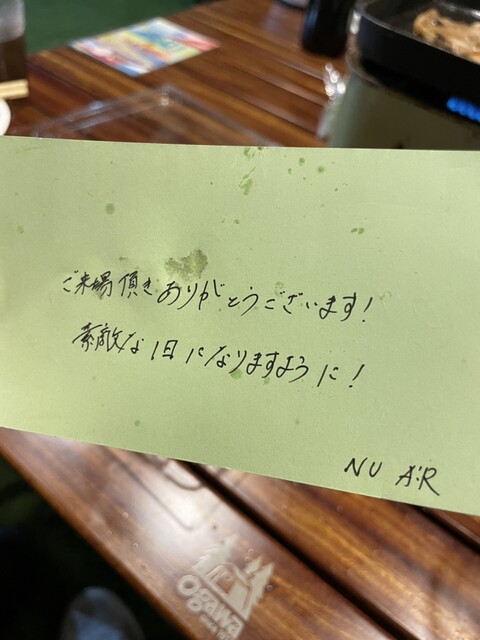 ご来場頂きありがとうございます!
素敵な1日になりますように!
NU AiR
ogawa